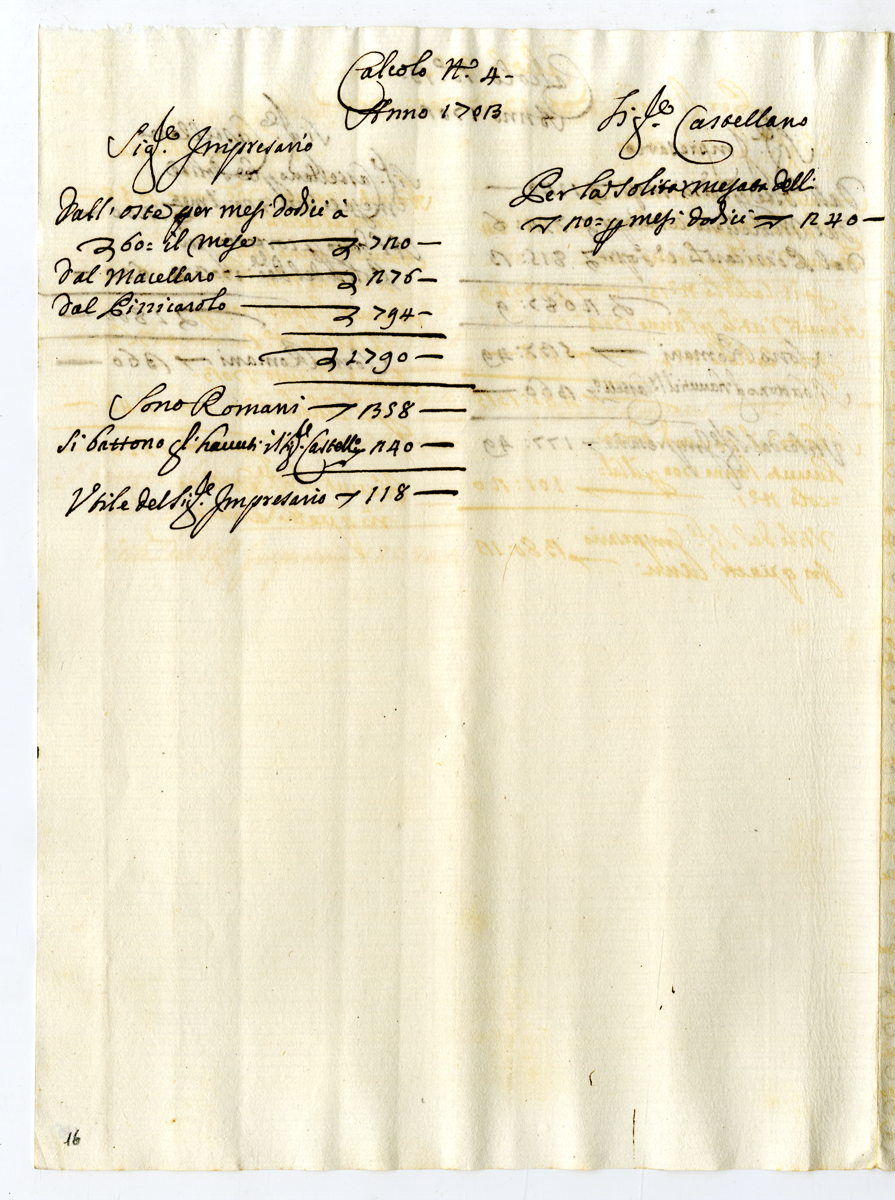 Calcolo N.º 4-
Anno 1703
Sig.re Impresario
Sig.re Castellano
Dall'oste per mesi dodici à
60= il mese 720
Dal Macellaro 276
Dal Pizzicarolo 794
1790
Sono Romani 358
Si battono gl'havuti il Sig.re Castell.º 240
Utile del Sig.re Impresario 118
Per la solita mesata delli
20= p mesi dodici 240
16